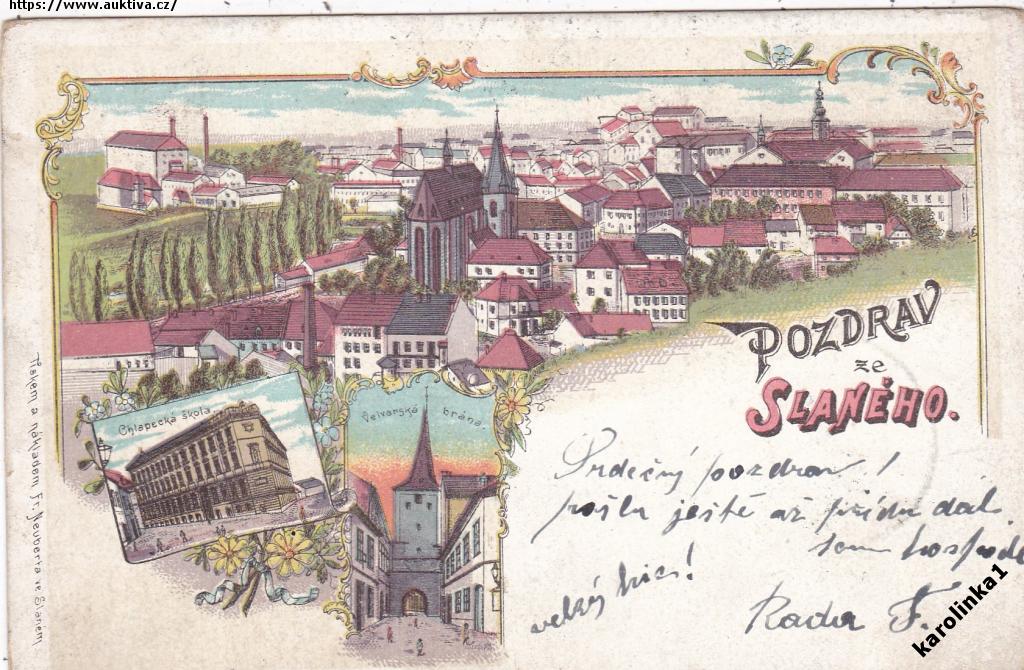 https://www.auktiva.cz/
Chlapecká škola
Velvarská brána
POZDRAV
ze
SLANÉHO.
Srdečný pozdrav!
pošlu ještě až přijdu dál
sem
velký
Rada F.
Tiskem a nákladem Fr. Neuberta ve Slaném.
karolinka1